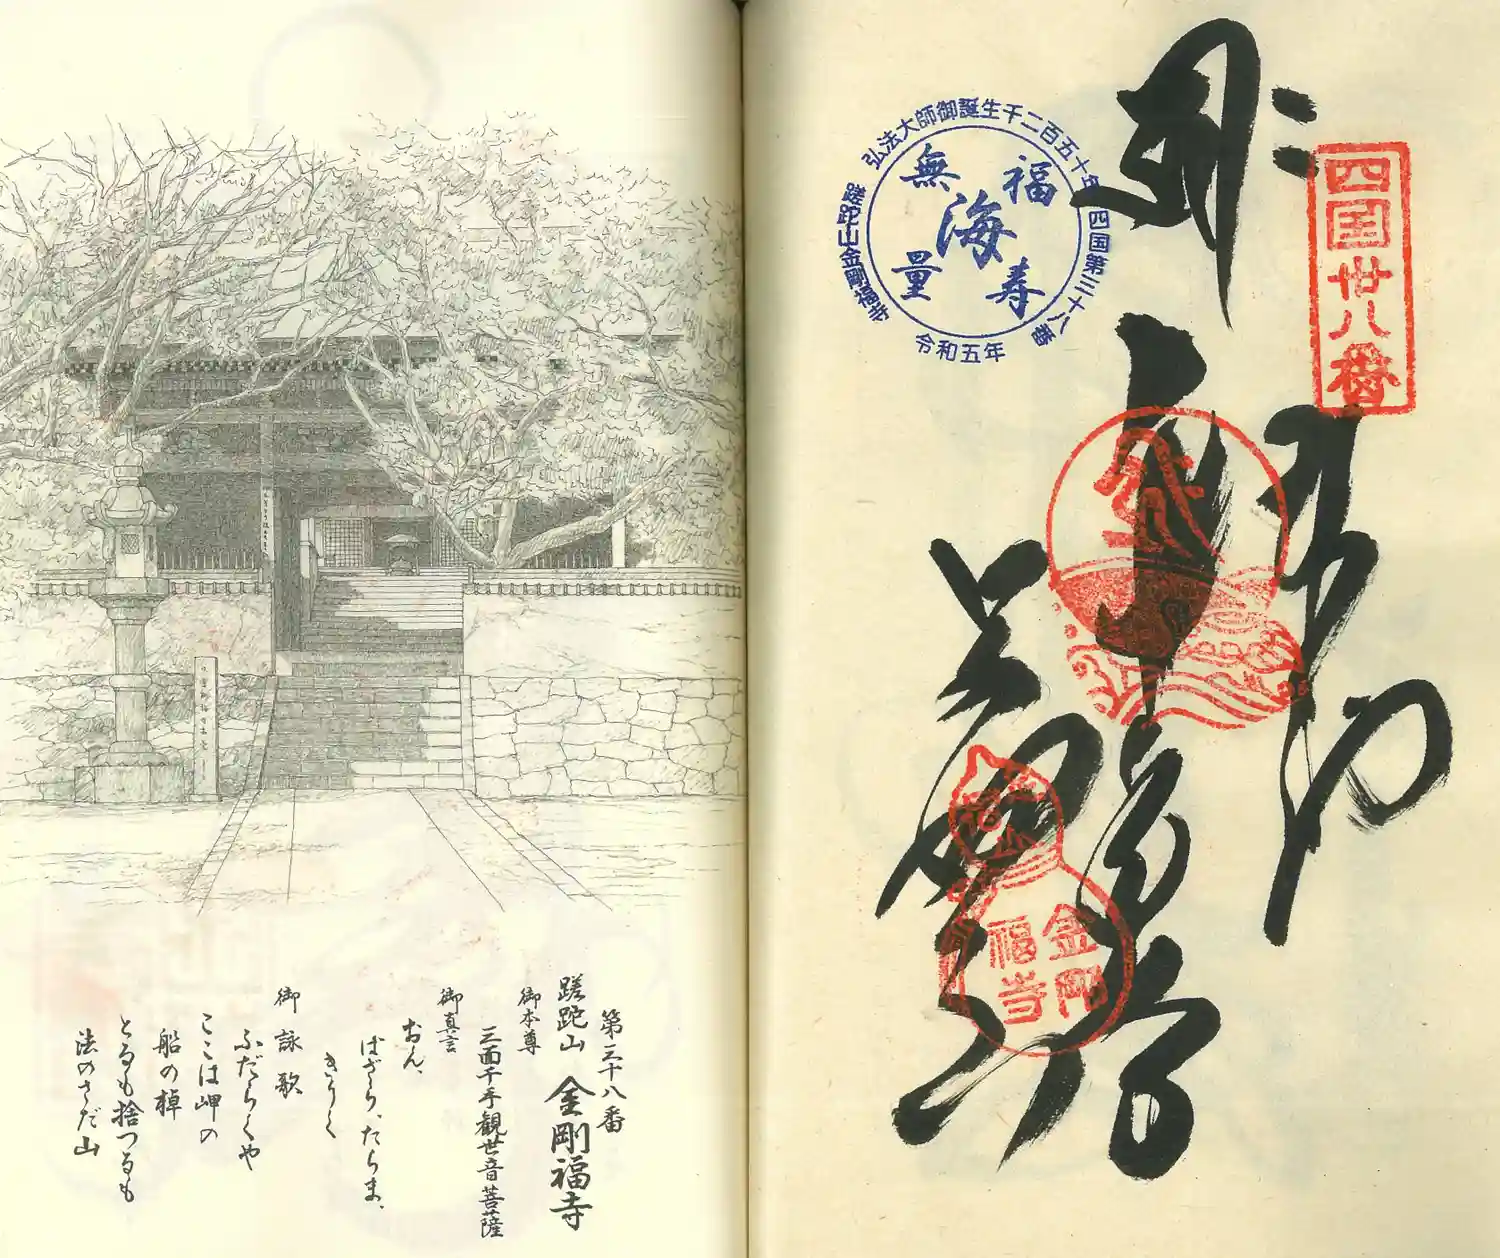 第三十八番
蹉跎山 金剛福寺
御本尊
三面千手観世音菩薩
御真言
おん、
ばざら、たらま、
きりく
御詠歌
ふだらくや
ここは岬の
船の棹
とるも捨つるも
法のさだ山
弘法大師御誕生千二百五十年
四国第三十八番
蹉跎山金剛福寺
令和五年
福寿
海
無量
四国卅八番
金剛
福寺